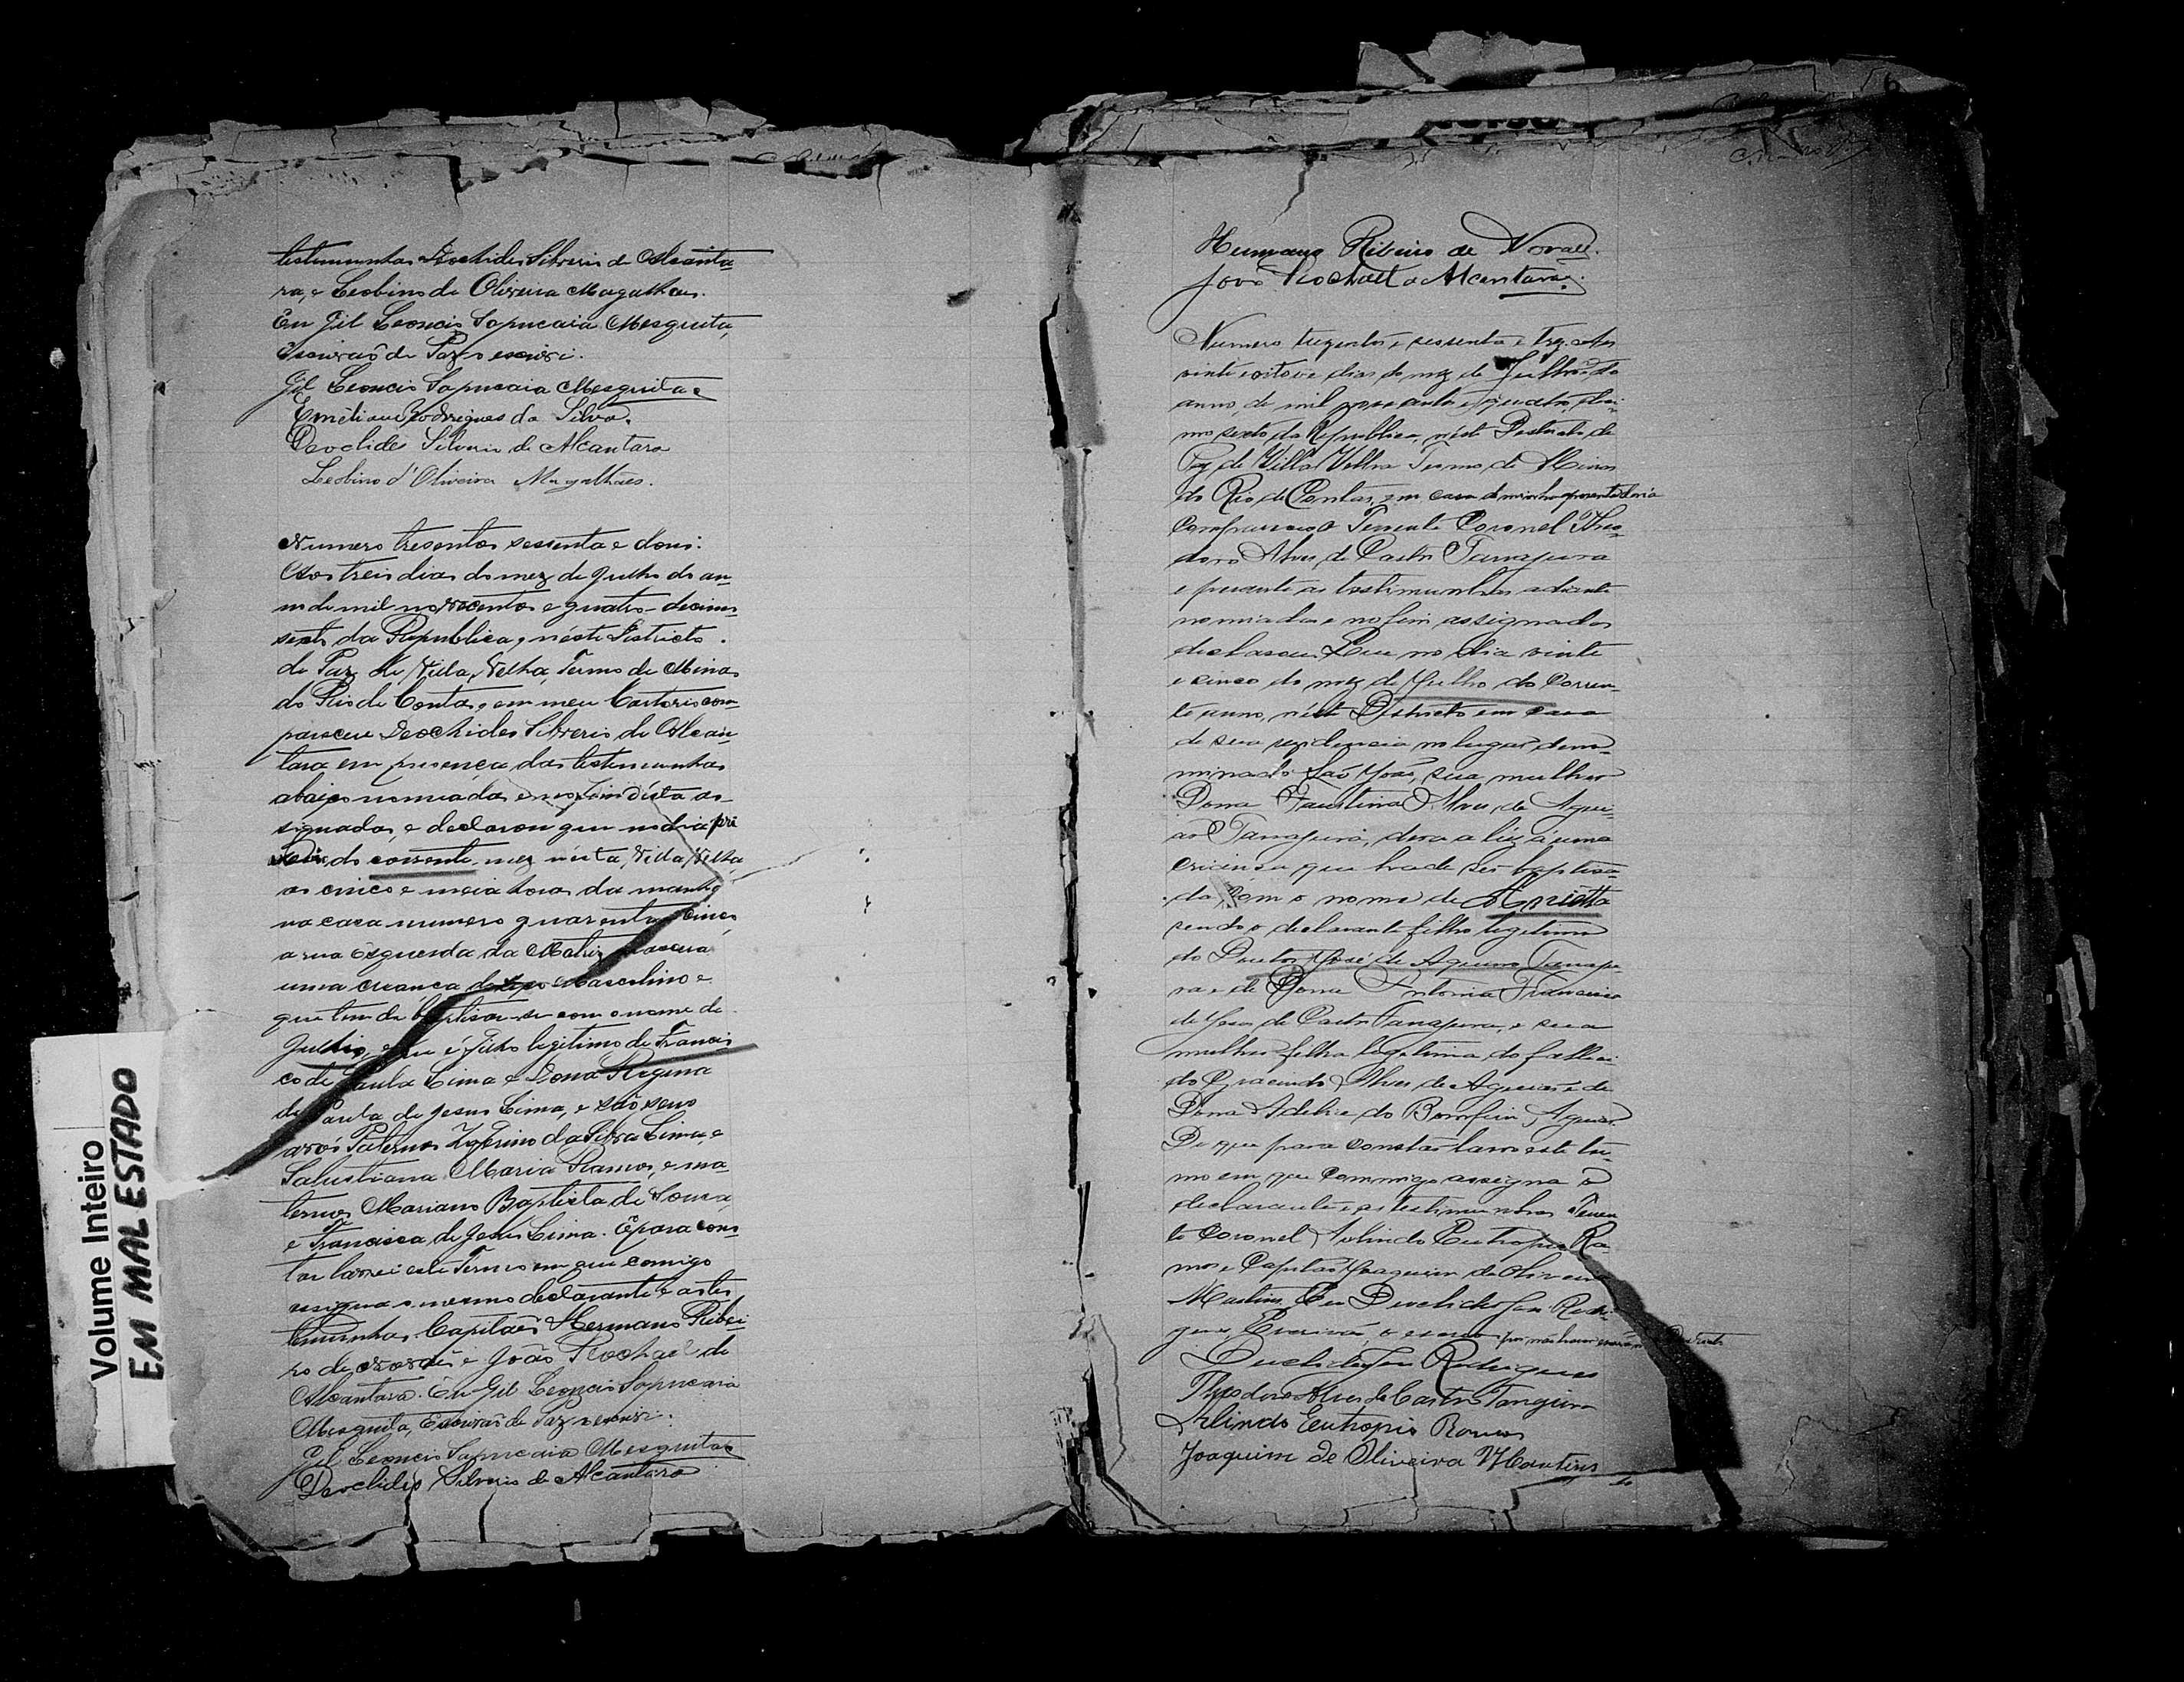 testemunhas Deochides Silverio de Alcanta-
ra, e Leobino de Oliveira Magalhães.
Eu Gil Leoncio Sapucaia Mesquita,
Escrivão de Paz o escrivi.
Gil Leoncio Sapucaia Mesquita
Emeliano Rodrigues da Silva.
Deoclides Silverio de Alcantara
Leobino d'Oliveira Magalhães.
Numero tresentos sessenta e dous.
Aos treis dias do mez de Julho do an-
no de mil novecentos e quatro decimo
sexto da Republica, néste Districto
de Paz de Villa Velha, Termo de Minas
do Rio de Contas, em meu Cartorio com-
pareceu Deochides Silverio de Alcan-
tara em presença das testemunhas
abaixo nomiadas e no fim désta as-
signadas, e declarou que no dia pri
do corrente mez nésta Villa Velha,
as cinco e meia horas da manhã
na casa numero quarenta cinco
a rua Esquerda da Matriz nascera
uma creança de sexo Masculino e
que tem de baptisar-se com o nome de
Julio, e que é filho legitimo de Francis
co de Paula Lima e Dona Regina
de Paula de Jesus Lima, e são seus
avós Paternos Zeferino da Silva Lima e
Salustiana Maria Ramos, e ma-
ternos Mariano Baptista de Sousa,
e Francisca de Jesus Lima. E para cons
tar lavrei este Termo em que comigo
assigna o mesmo declarante e as tes
temunhas Capitão Hermano Ribei
ro de Novaes e João Rochael de
Alcantara. Eu Gil Leoncio Sapucaia
Mesquita, Escrivão de Paz o escrivi.
Gil Leoncio Sapucaia Mesquita
Deoclides Silverio de Alcantara
Hermano Ribeiro de Novaes.
João Rochael a Alcantara.
Numero trezentos e sessenta e trez. Aos
vinte e oito dias do mez de Julho do
anno de mil novecentos e quatro, deci-
mo sexto da Republica, nést Destricto de
Paz de Villa Velha Termo de Minas
do Rio de Contas, em casa de minha aposentadoria
Compareceo o Tenente Coronel Theo-
doro Alves de Castro Tanajura
e perante as testimunhas adiante
nomiadas e no fim assignadas
declarou Que no dia vinte
e cinco do mez de Julho do Corren-
te anno, nést Destricto em casa
de sua rezidencia no lugar deno-
minado São João, sua mulher
Dona Faustina Alves de Agui-
ar Tanajura, dera a luz á uma
crianssa que hade ser baptisa-
da Com o nome de Arietta
sendo o declarante filho legitimo
do Doutor José de Aquino Tanaju-
ra e de Dona Antonia Francisca
de Jesus de Castro Tanajura, e sua
mulher filha legitima do falleci-
do Gracindo Alves de Aguiar e de
Dona Adelia do Bomfim Aguiar
Do que para constar lavro este ter-
mo em que Commigo assigna o
declarante e as testimunhas Tenen
te Coronel Arlindo Eutropio Ra
mos e Capitão Joaquim de Oliveira
Martins. Eu Deoclides José Rodri-
gues, Escrivão o escrevi
Deoclides José Rodrigues
Theodoro Alves de Castro Tanajura
Arlindo Eutropio Ramos
Joaquim de Oliveira Martins
Volume Inteiro
EM MAL ESTADO